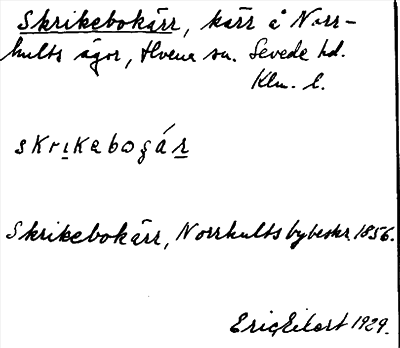 Skrikebokärr, kärr å Norr-
hults ägor, Hvena sn. Sevede hd.
Klm. l.
skrikabogár
Skrikebokärr, Norrhults bybeskr. 1856.
Eric Eilert 1929.